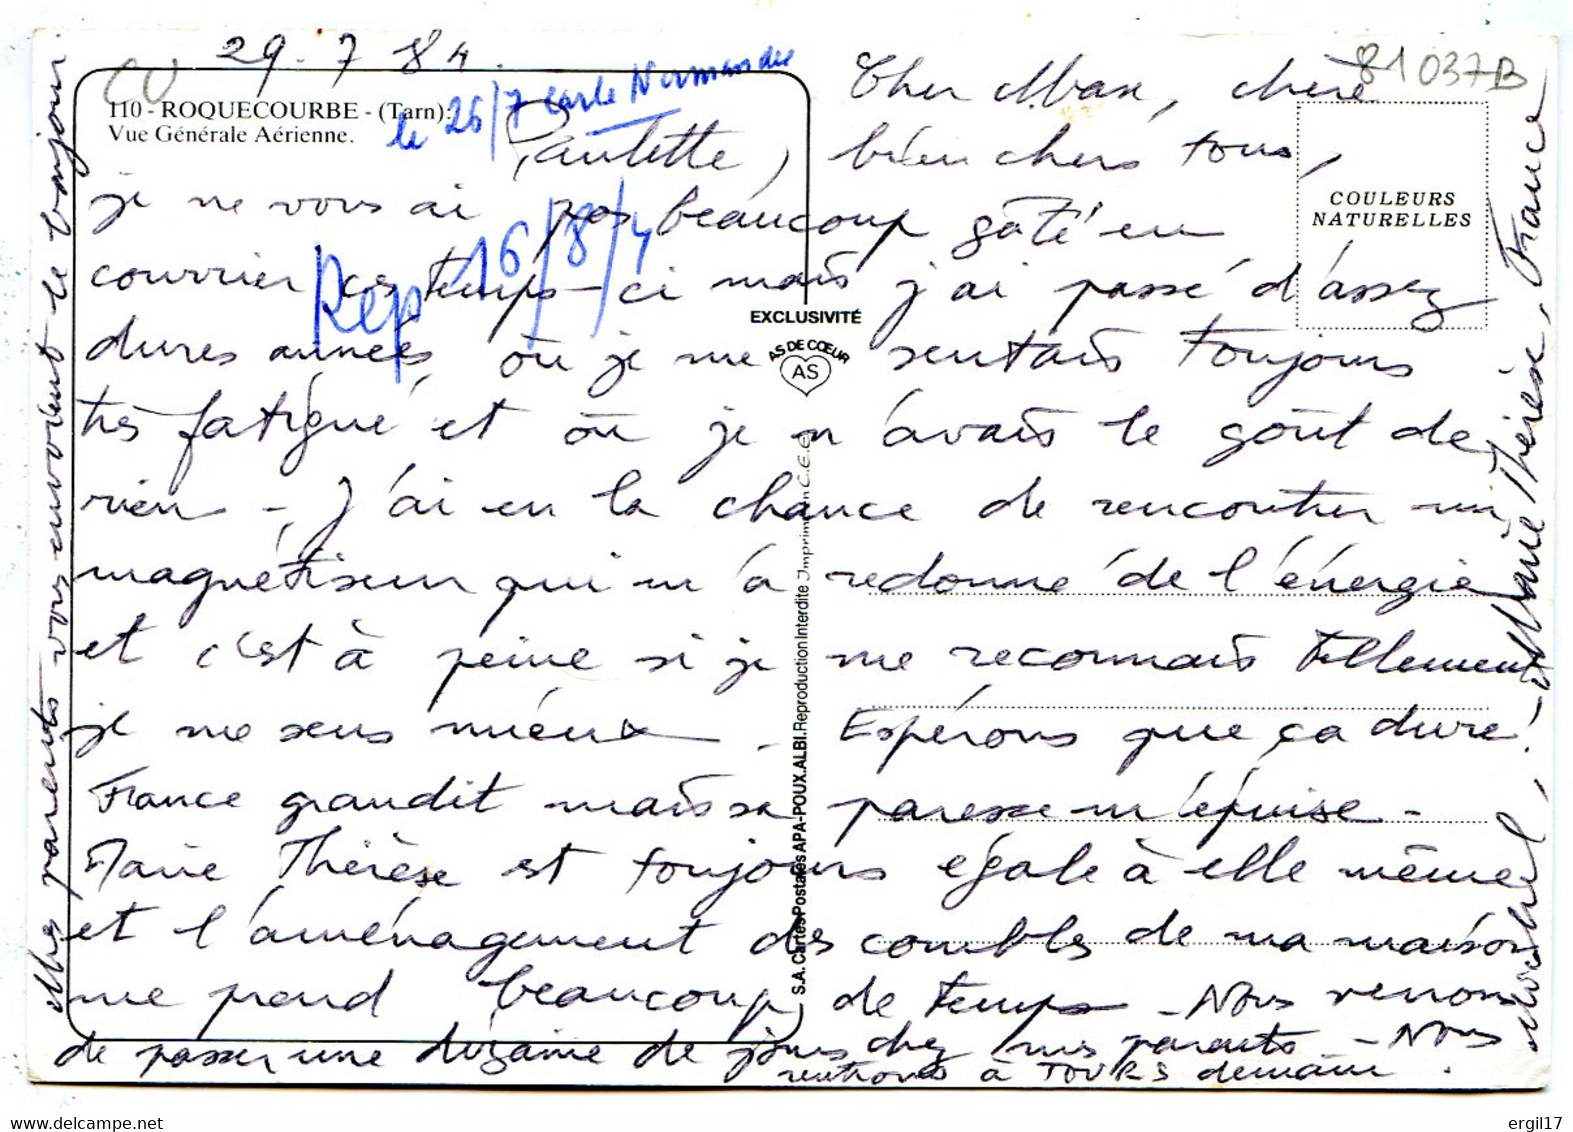 29.7.84.
CU
81037B
110 - ROQUECOURBE - (Tarn):
Vue Générale Aérienne.
le 26/7 carte Normandie
Rep 16/8/4
COULEURS
NATURELLES
EXCLUSIVITÉ
AS DE CŒUR
AS
S.A. Cartes Postales APA-POUX.ALBI. Reproduction Interdite Imprimé en C.E.E.
Cher Max, chère
Paulette, bien chers tous,
je ne vous ai pas beaucoup gâté en
courrier ces temps-ci mais j'ai passé d'assez
dures années où je me sentais toujours
très fatigué et où je n'avais le goût de
rien - J'ai eu la chance de rencontrer un
magnétiseur qui m'a redonné de l'énergie
et c'est à peine si je me reconnais tellement
je me sens mieux - Espérons que ça dure! -
France grandit mais sa paresse m'épuise -
Marie Thérèse est toujours égale à elle même
et l'aménagement des combles de ma maison
me prend beaucoup de temps - Nous venons
de passer une dizaine de jours chez mes parents - Nous
rentrons à TOURS demain.
Mes parents vous envoient le bonjour
Michel, Marie Thérèse, France
ergil17